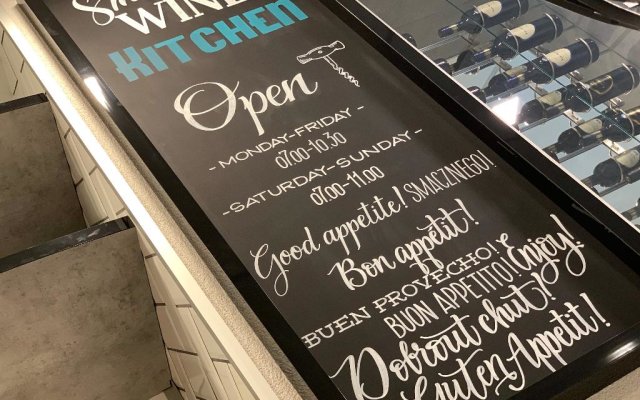 WINE
KITCHEN
Open
- MONDAY-FRIDAY -
07.00-10.30
-SATURDAY-SUNDAY -
07.00-11.00
Good appetite! SMACZNEGO!
Bon appétit!
BUEN PROVECHO!
BUON APPETITO! Enjoy!
Dobrout chut!
Guten Appetit!